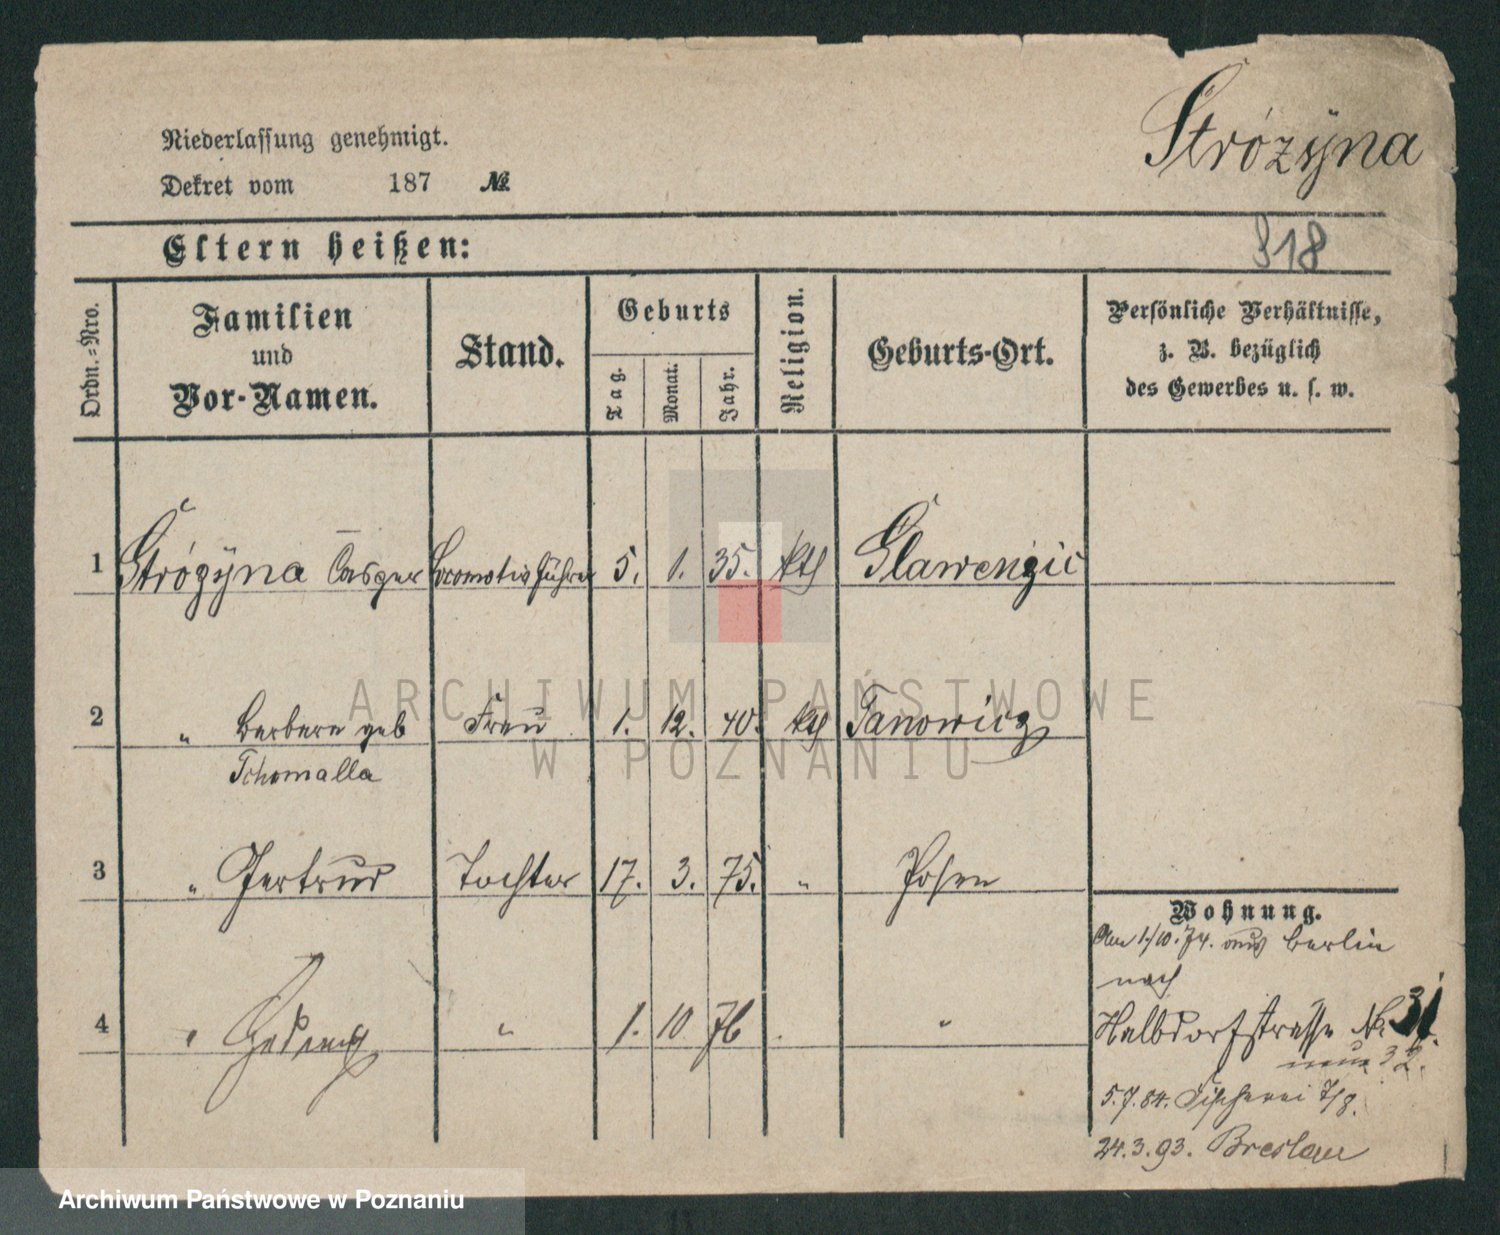 Strózÿna
Niederlassung genehmigt.
Dekret vom 187 №
Eltern heißen:
318
Ordn.=Nro.
Familien
und
Vor-Namen.
Stand.
Geburts
Tag.
Monat.
Jahr.
Religion.
Geburts-Ort.
Persönliche Verhältnisse,
z. B. bezüglich
des Gewerbes u. s. w.
1 Strózÿna Casper Locomotivführer 5. 1. 35. kth Slawenzic
2 " Barbara geb Frau 1. 12. 40. kth Janowicz
Tchomalla
3 " Gertrud Tochter 17. 3. 75. " Posen
4 " Hedwig " 1. 10 76 "
Wohnung.
Am 1./10. 74. aus Berlin
nach
Halbdorfstrasse Nr. 31.
neue 32.
5.7.84. Fischerei 7/8.
24.3.93. Breslau
ARCHIWUM PAŃSTWOWE
W POZNANIU
Archiwum Państwowe w Poznaniu